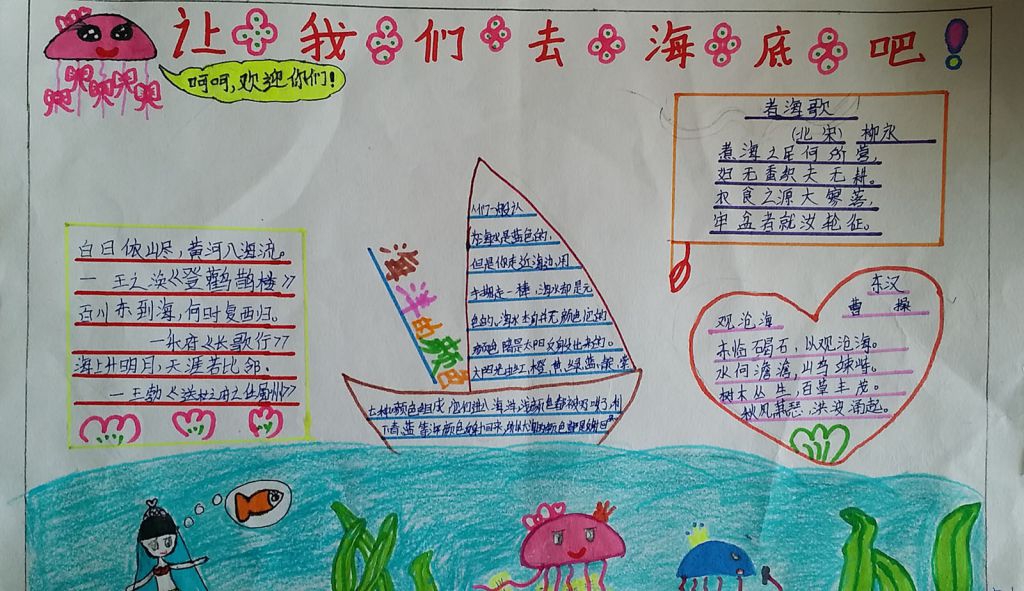 让我们去海底吧!
呵呵,欢迎你们!
煮海歌
(北宋) 柳永
煮海之民何所营,
妇无蚕织夫无耕。
衣食之源太寥落,
牢盆煮就汝轮征。
白日依山尽,黄河入海流。
—王之涣《登鹳鹊楼》
百川东到海,何时复西归。
—乐府《长歌行》
海上升明月,天涯若比邻.
—王勃《送杜之任蜀州》
海洋的颜色
人们一般认
为海水是蓝色的,
但是你走近海边,用
手掬走一捧,海水却是无
色的。海水本身并无颜色,它的
颜色是太阳
太阳光由红、橙、黄、绿、蓝、紫
七种颜色组成,它们进入海洋,
东汉
曹操
观沧海
东临碣石,以观沧海。
水何澹澹,山岛竦峙。
树木丛生,百草丰茂。
秋风萧瑟,洪波涌起。